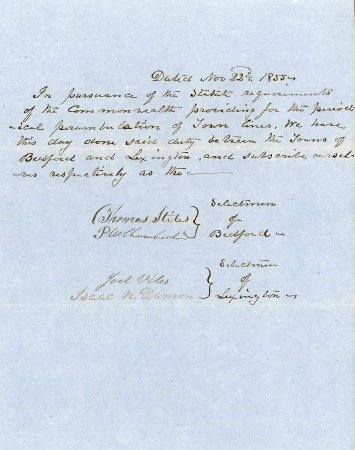 Dated Nov 22d, 1855
In pursuance of the Statute requirements
of the Commonwealth providing for the period-
-ical perambulation of Town lines, We have
this day done said duty between the Towns of
Bedford and Lexington, and subscribe oursel-
-ves respectively as the
Thomas Stiles
P W Chamberlin
Selectmen
of
Bedford
Joel Viles
Isaac N. Damon
Selectmen
of
Lexington